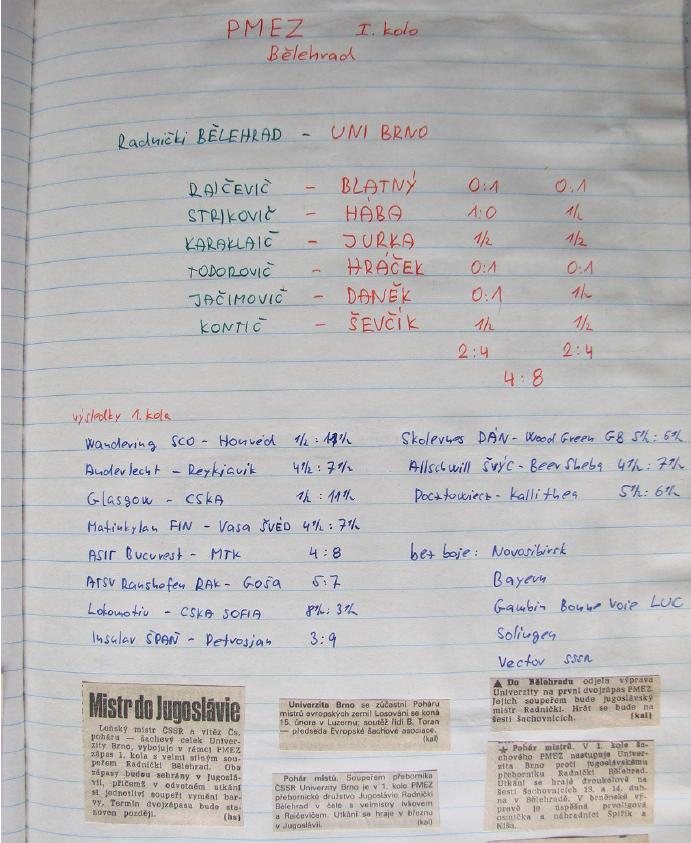 PMEZ I. kolo
Bělehrad
Radnički BĚLEHRAD - UNI BRNO
RAIČEVIČ - BLATNÝ 0:1 0:1
STRIKOVIČ - HÁBA 1:0 1/2
KARAKLAIČ - JURKA 1/2 1/2
TODOROVIČ - HRÁČEK 0:1 0:1
JAČIMOVIČ - DANĚK 0:1 1/2
KONTIČ - ŠEVČÍK 1/2 1/2
2:4 2:4
4:8
výsledky 1. kola
Wandering SCO - Honvéd 1/2 : 11 1/2
Anderlecht - Reykjavik 4 1/2 : 7 1/2
Glasgow - CSKA 1/2 : 11 1/2
Matinkylan FIN - Vasa ŠVÉD 4 1/2 : 7 1/2
ASIT Bucurest - MTK 4:8
ATSV Ranshofen RAK - Goša 5:7
Lokomotiv - CSKA SOFIA 8 1/2 : 3 1/2
Insular ŠPAŇ - Petrosjan 3:9
Skolernes DÁN - Wood Green GB 5 1/2 : 6 1/2
Allschwill ŠVÝC - Beer Sheba 4 1/2 : 7 1/2
Pocztowiec - Kallithea 5 1/2 : 6 1/2
bez boje: Novosibirsk
Bayern
Gambin Bonne Voie LUC
Solingen
Vector SSSR
Mistr do Jugoslávie
Loňský mistr ČSSR a vítěz Čs.
poháru — šachový celek Univer-
zity Brno, vybojuje v rámci PMEZ
zápas 1. kola s velmi silným sou-
peřem Radnički Bělehrad. Oba
zápasy budou sehrány v Jugoslá-
vii, přičemž v odvetném utkání
si jednotliví soupeři vymění bar-
vy. Termín dvojzápasu bude sta-
noven později. (hs)
Univerzita Brno se zúčastní Poháru
mistrů evropských zemí! Losování se koná
15. února v Luzernu; soutěž řídí B. Toran
— předseda Evropské šachové asociace.
(kal)
Pohár mistrů. Soupeřem přeborníka
ČSSR Univerzity Brno je v 1. kole PMEZ
přebornické družstvo Jugoslávie Radnički
Bělehrad v čele s velmistry Ivkovem
a Raičevičem. Utkání se hraje v březnu
v Jugoslávii. (kal)
▲ Do Bělehradu odjela výprava
Univerzity na první dvojzápas PMEZ.
Jejich soupeřem bude jugoslávský
mistr Radnički. Hrát se bude na
šesti šachovnicích. (kal)
★ Pohár mistrů. V 1. kole ša-
chového PMEZ nastupuje Univer-
zita Brno proti jugoslávskému
přeborníku Radnički Bělehrad.
Utkání se hraje dvoukolově na
šesti šachovnicích 13. a 14. dub-
na v Bělehradě. V brněnské vý-
pravě je úspěšná prvoligová
osmička a náhradníci Špiřík a